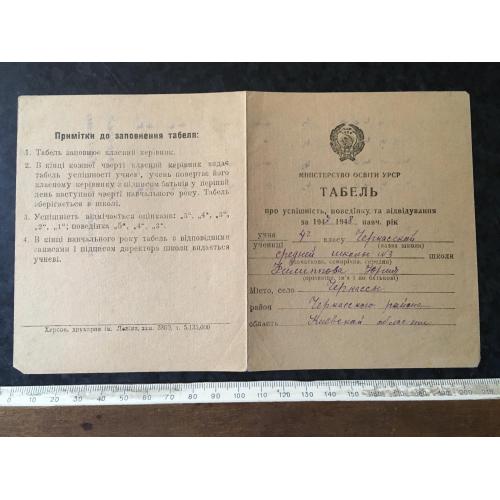 Примітки до заповнення табеля:
1. Табель заповнює класний керівник.
2. В кінці кожної чверті класний керівник видає
табель успішності учнев, учень повертає його
класному керівнику з підписом батьків у перший
день наступної чверті навчального року. Табель
зберігається в школі.
3. Успішність відмічається оцінками: „5“, „4“, „3“,
„2“, „1“; поведінка „5“, „4“, „3“.
4. В кінці навчального року табель з відповідними
записами і підписом директора школи видається
учневі.
Херсон, друкарня ім. Леніна, зам. 5869, т. 5.135,000
МІНІСТЕРСТВО ОСВІТИ УРСР
ТАБЕЛЬ
про успішність, поведінку та відвідування
за 194 1948 навч. рік
учня 4г класу Черкасской
учениці (назва школи)
средней школы №3 школи
(початкова, семирічна, середня)
Филиппова Юрия
(прізвище, ім'я і по батькові)
Місто, село Черкассы
район Черкасского района
область Киевской области
0 10 20 30 40 50 60 70 80 90 100 110 120 130 140 150 160 170 180 190 200 210